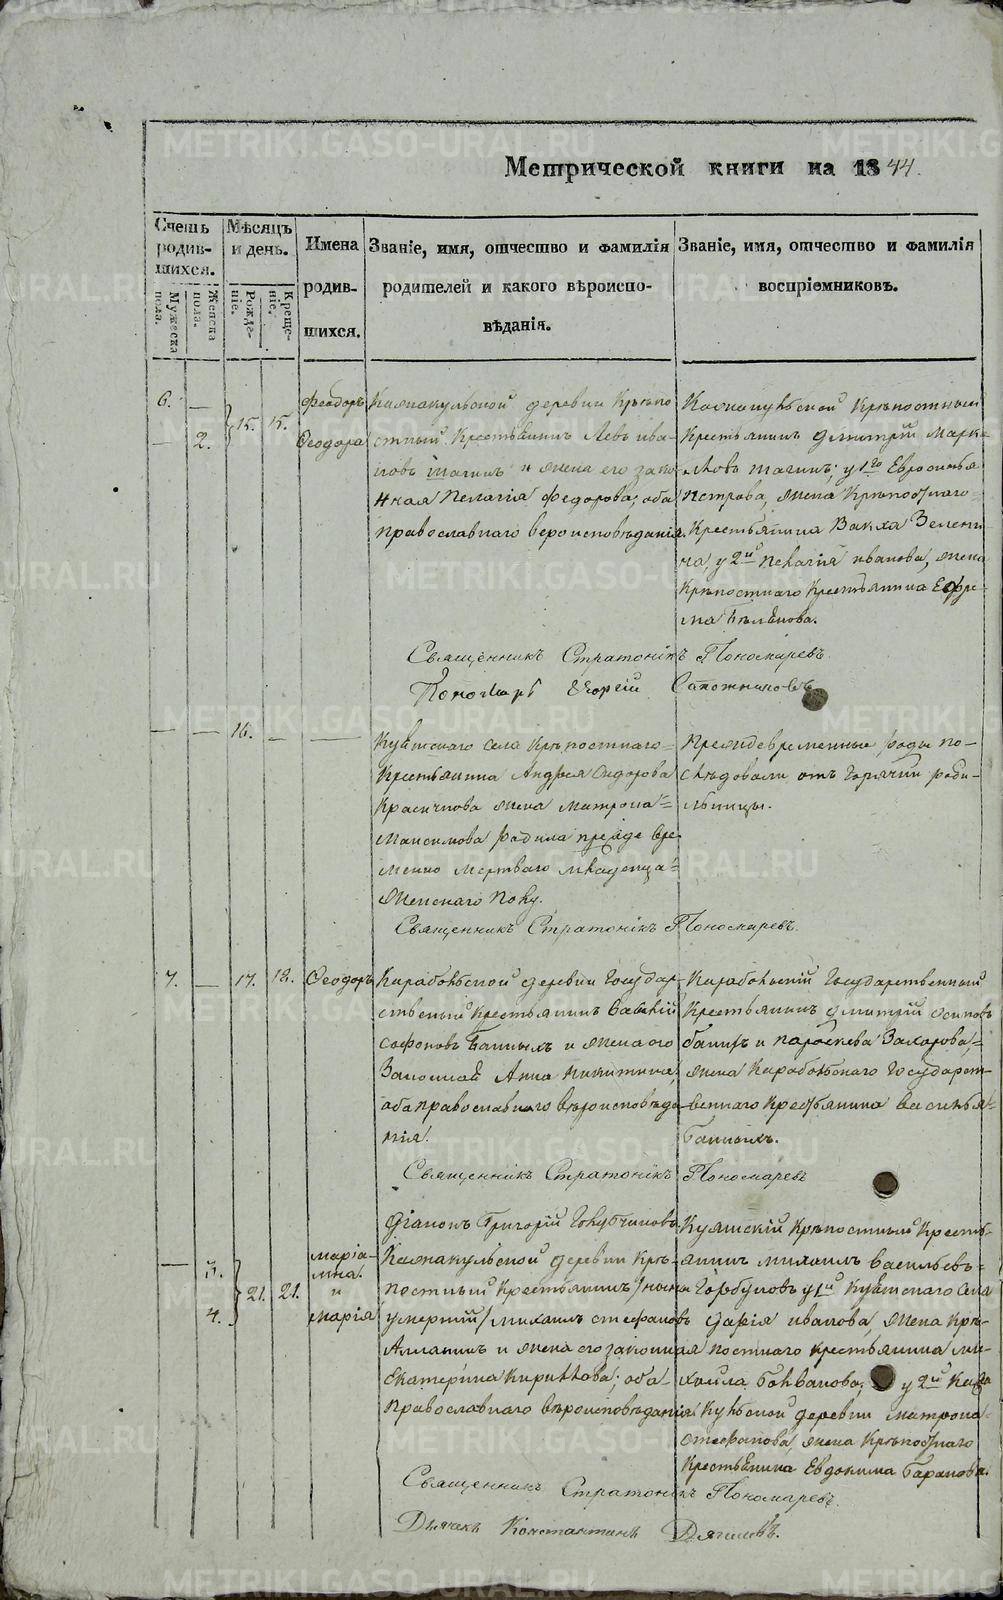 Метрической книги на 1844.
Счетъ родив-
шихся.
Мужеска пола.
Женска пола.
Мѣсяцъ
и день.
Рожде-
ніе.
Креще-
ніе.
Имена
родив-
шихся.
Званіе, имя, отчество и фамилія
родителей и какого вѣроиспо-
вѣданія.
Званіе, имя, отчество и фамилія
воспріемниковъ.
6. —
— 2.
15. 15.
Феодоръ
Феодора
деревни Крѣпо
стный Крестьянинъ Левъ ива-
новъ и жена его зако-
нная Пелагія Федорова; оба
православнаго вероисповѣданія.
Крѣпостный
Крестьянинъ Дмитрій Марке-
ловъ у 1го Евросинья
Петрова, жена Крѣпостнаго
Крестьянина Вакха Зелени-
на, у 2й Пелагія иванова, жена
Крѣпостнаго Крестьянина Ефре-
ма
Священникъ Стратоникъ Пономаревъ.
Пономарь Егоргій Сапожниковъ
— — 16. — —
села Крѣпостнаго
Крестьянина Андрея Сидорова
жена Матрона
Максимова родила прежде вре-
менно мертваго младенца
Женскаго полу.
Преждевременные роды по-
слѣдовали отъ горячки роди-
льницы.
Священникъ Стратоникъ Пономаревъ.
7. — 17. 18. Феодоръ
Карабольской деревни Государ-
ственный Крестьянинъ
софоновъ и жена его
Законная Анна Никитина,
оба православнаго вѣроисповѣда-
нія.
Карабольскій Государственный
Крестьянинъ Дмитрій осиповъ
и параскева Захарова,
жена Карабольскаго Государст-
веннаго Крестьянина василья
Священникъ Стратоникъ Пономаревъ
Діаконъ Григорій
— 3.
4.
21. 21.
Маріа-
мна.
и
Марія
деревни Крѣ-
постный Крестьянинъ /нынѣ
умершій/ михаилъ стефановъ
и жена его законная
Екатерина Кирилова; оба
Православнаго вѣроисповѣданія.
Крѣпостный Кресть-
янинъ михаилъ васильевъ
Горбуновъ у 1й села
Дарія иванова, жена Крѣ-
постнаго крестьянина ми-
хаила у 2й
деревни матрона
стефанова, жена Крѣпостнаго
Крестьянина Евдокима Баранова.
Священникъ Стратоникъ Пономаревъ.
Дьячекъ Константинъ
METRIKI.GASO-URAL.RU